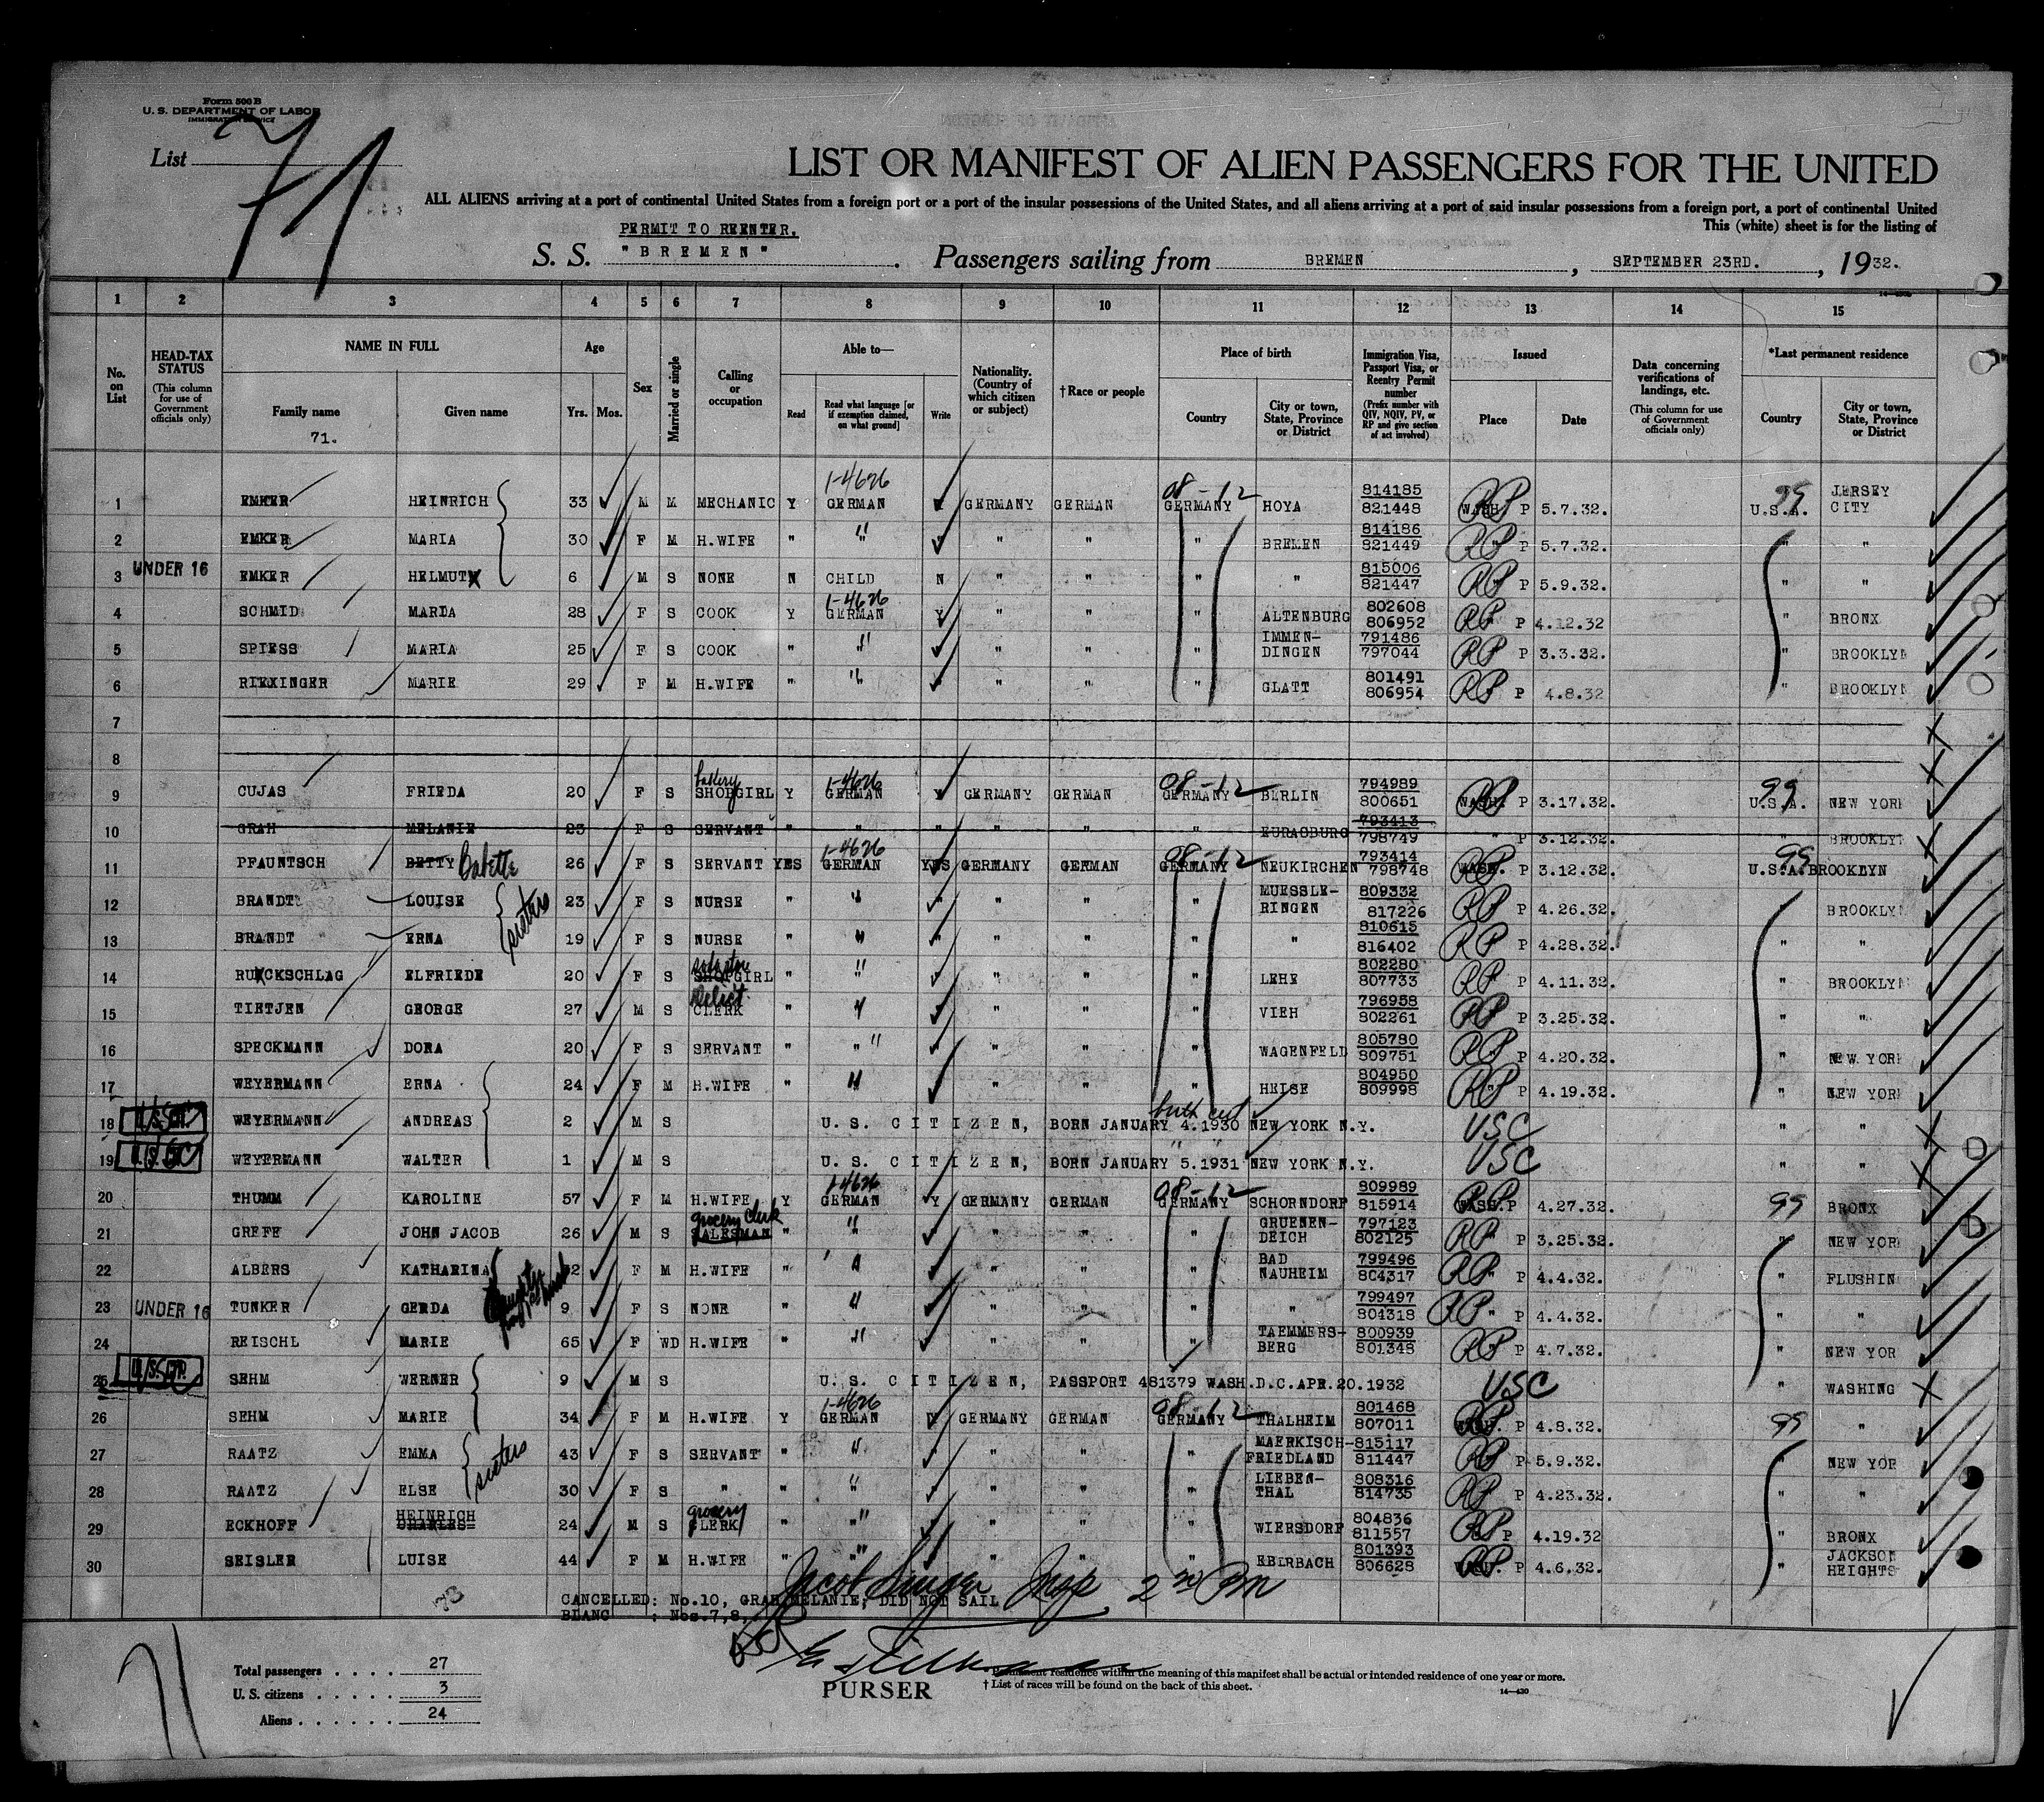 Form 500 B
U. S. DEPARTMENT OF LABOR
IMMIGRATION SERVICE
List 71
LIST OR MANIFEST OF ALIEN PASSENGERS FOR THE UNITED
ALL ALIENS arriving at a port of continental United States from a foreign port or a port of the insular possessions of the United States, and all aliens arriving at a port of said insular possessions from a foreign port, a port of continental United
This (white) sheet is for the listing of
PERMIT TO REENTER.
S. S. "BREMEN" . Passengers sailing from BREMEN , SEPTEMBER 23RD. , 1932.
1 2 3 4 5 6 7 8 9 10 11 12 13 14 15
No. on List
HEAD-TAX STATUS (This column for use of Government officials only)
NAME IN FULL Family name Given name
71.
Age Yrs. Mos.
Sex
Married or single
Calling or occupation
Able to— Read Read what language [or if exemption claimed, on what ground] Write
Nationality. (Country of which citizen or subject)
†Race or people
Place of birth Country City or town, State, Province or District
Immigration Visa, Passport Visa, or Reentry Permit number (Prefix number with QIV, NQIV, PV, or RP and give section of act involved)
Issued Place Date
Data concerning verifications of landings, etc. (This column for use of Government officials only)
*Last permanent residence Country City or town, State, Province or District
1 EMKER HEINRICH 33 M M MECHANIC Y 1-4626 GERMAN Y GERMANY GERMAN 08-12 GERMANY HOYA 814185 821448 WASH. RP P 5.7.32. 99 U.S.A. JERSEY CITY
2 EMKER MARIA 30 F M H.WIFE " " " " " " BREMEN 814186 821449 RP P 5.7.32. " "
3 UNDER 16 EMKER HELMUT 6 M S NONE N CHILD N " " " " 815006 821447 RP P 5.9.32. " "
4 SCHMID MARIA 28 F S COOK Y 1-4626 GERMAN Y " " " ALTENBURG 802608 806952 RP P 4.12.32 " BRONX
5 SPIESS MARIA 25 F S COOK " " " " " " IMMEN-DINGEN 791486 797044 RP P 3.3.32. " BROOKLYN
6 RIEXINGER MARIE 29 F M H.WIFE " " " " " " GLATT 801491 806954 RP P 4.8.32 " BROOKLYN
7
8
9 CUJAS FRIEDA 20 F S bakery SHOPGIRL Y 1-4626 GERMAN Y GERMANY GERMAN 08-12 GERMANY BERLIN 794989 800651 WASH. RP P 3.17.32. 99 U.S.A. NEW YORK
10 GRAH MELANIE 23 F S SERVANT " " " " " " EURASBURG 793413 798749 " P 3.12.32. " BROOKLYN
11 PFAUNTSCH BETTY Babette 26 F S SERVANT YES 1-4626 GERMAN YES GERMANY GERMAN 08-12 GERMANY NEUKIRCHEN 793414 798748 WASH. RP P 3.12.32. 99 U.S.A. BROOKLYN
12 BRANDT LOUISE sisters 23 F S NURSE " " " " " " MUESSLE-RINGEN 809332 817226 RP P 4.26.32. " BROOKLYN
13 BRANDT ERNA 19 F S NURSE " " " " " " " 810615 816402 RP P 4.28.32. " "
14 RUECKSCHLAG ELFRIEDE 20 F S SHOPGIRL " " " " " " LEHE 802280 807733 RP P 4.11.32. " BROOKLYN
15 TIETJEN GEORGE 27 M S CLERK " " " " " " VIEH 796958 802261 RP P 3.25.32. " "
16 SPECKMANN DORA 20 F S SERVANT " " " " " " WAGENFELD 805780 809751 RP P 4.20.32. " NEW YORK
17 WEYERMANN ERNA 24 F M H.WIFE " " " " " " HEISE 804950 809998 RP P 4.19.32. " NEW YORK
18 WEYERMANN ANDREAS 2 M S U. S. CITIZEN, BORN JANUARY 4.1930 NEW YORK N.Y. birth cert USC " "
19 WEYERMANN WALTER 1 M S U. S. CITIZEN, BORN JANUARY 5.1931 NEW YORK N.Y. USC " "
20 THUMM KAROLINE 57 F M H.WIFE Y 1-4626 GERMAN Y GERMANY GERMAN 08-12 GERMANY SCHORNDORF 809989 815914 WASH. RP P 4.27.32. 99 BRONX
21 GREFE JOHN JACOB 26 M S grocery clerk SALESMAN " " " " " " GRUENEN-DEICH 797123 802125 RP P 3.25.32. " NEW YORK
22 ALBERS KATHARINA 32 F M H.WIFE " " " " " " BAD NAUHEIM 799496 804317 RP P 4.4.32. " FLUSHIN
23 UNDER 16 TUNKER GERDA 9 F S NONE " " " " " " " 799497 804318 RP P 4.4.32. " "
24 REISCHL MARIE 65 F WD H.WIFE " " " " " " TAEMMERS-BERG 800939 801348 RP P 4.7.32. " NEW YOR
25 SEHM WERNER 9 M S U. S. CITIZEN, PASSPORT 481379 WASH.D.C.APR.20.1932 USC " WASHING
26 SEHM MARIE 34 F M H.WIFE Y 1-4626 GERMAN Y GERMANY GERMAN 08-12 GERMANY THALHEIM 801468 807011 RP P 4.8.32. 99 "
27 RAATZ EMMA sisters 43 F S SERVANT " " " " " " MAERKISCH-FRIEDLAND 815117 811447 RP P 5.9.32. " NEW YOR
28 RAATZ ELSE 30 F S " " " " " " " LIEBEN-THAL 808316 814735 RP P 4.23.32. " "
29 ECKHOFF HEINRICH CHARLES 24 M S grocery CLERK " " " " " " WIERSDORF 804836 811557 RP P 4.19.32 " BRONX
30 SEISLER LUISE 44 F M H.WIFE " " " " " " EBERBACH 801393 806628 WASH. RP P 4.6.32. " JACKSON HEIGHTS
Jacob Singer Insp
CANCELLED: No.10, GRAH MELANIE; DID NOT SAIL
BLANC : Nos.7,8,
Total passengers . . . . 27
U. S. citizens . . . . . 3
Aliens . . . . . . 24
PURSER
Permanent residence within the meaning of this manifest shall be actual or intended residence of one year or more.
† List of races will be found on the back of this sheet.
14—430